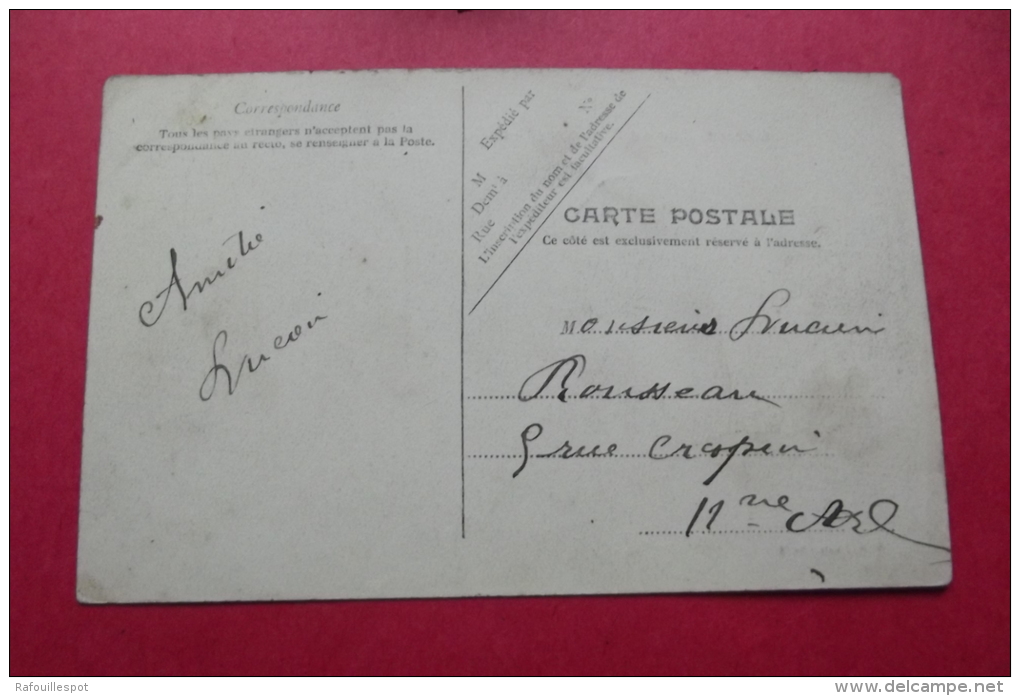 Correspondance
Tous les pays étrangers n'acceptent pas la
correspondance au recto, se renseigner à la Poste.
Amitié
Expédié par
M
Demt à
Rue N°
L'inscription du nom et de l'adresse de
l'expéditeur est facultative.
CARTE POSTALE
Ce côté est exclusivement réservé à l'adresse.
Monsieur Lucien
Rousseau
5 rue Crespin
11me Ard
Rafouillespot
www.delcampe.net